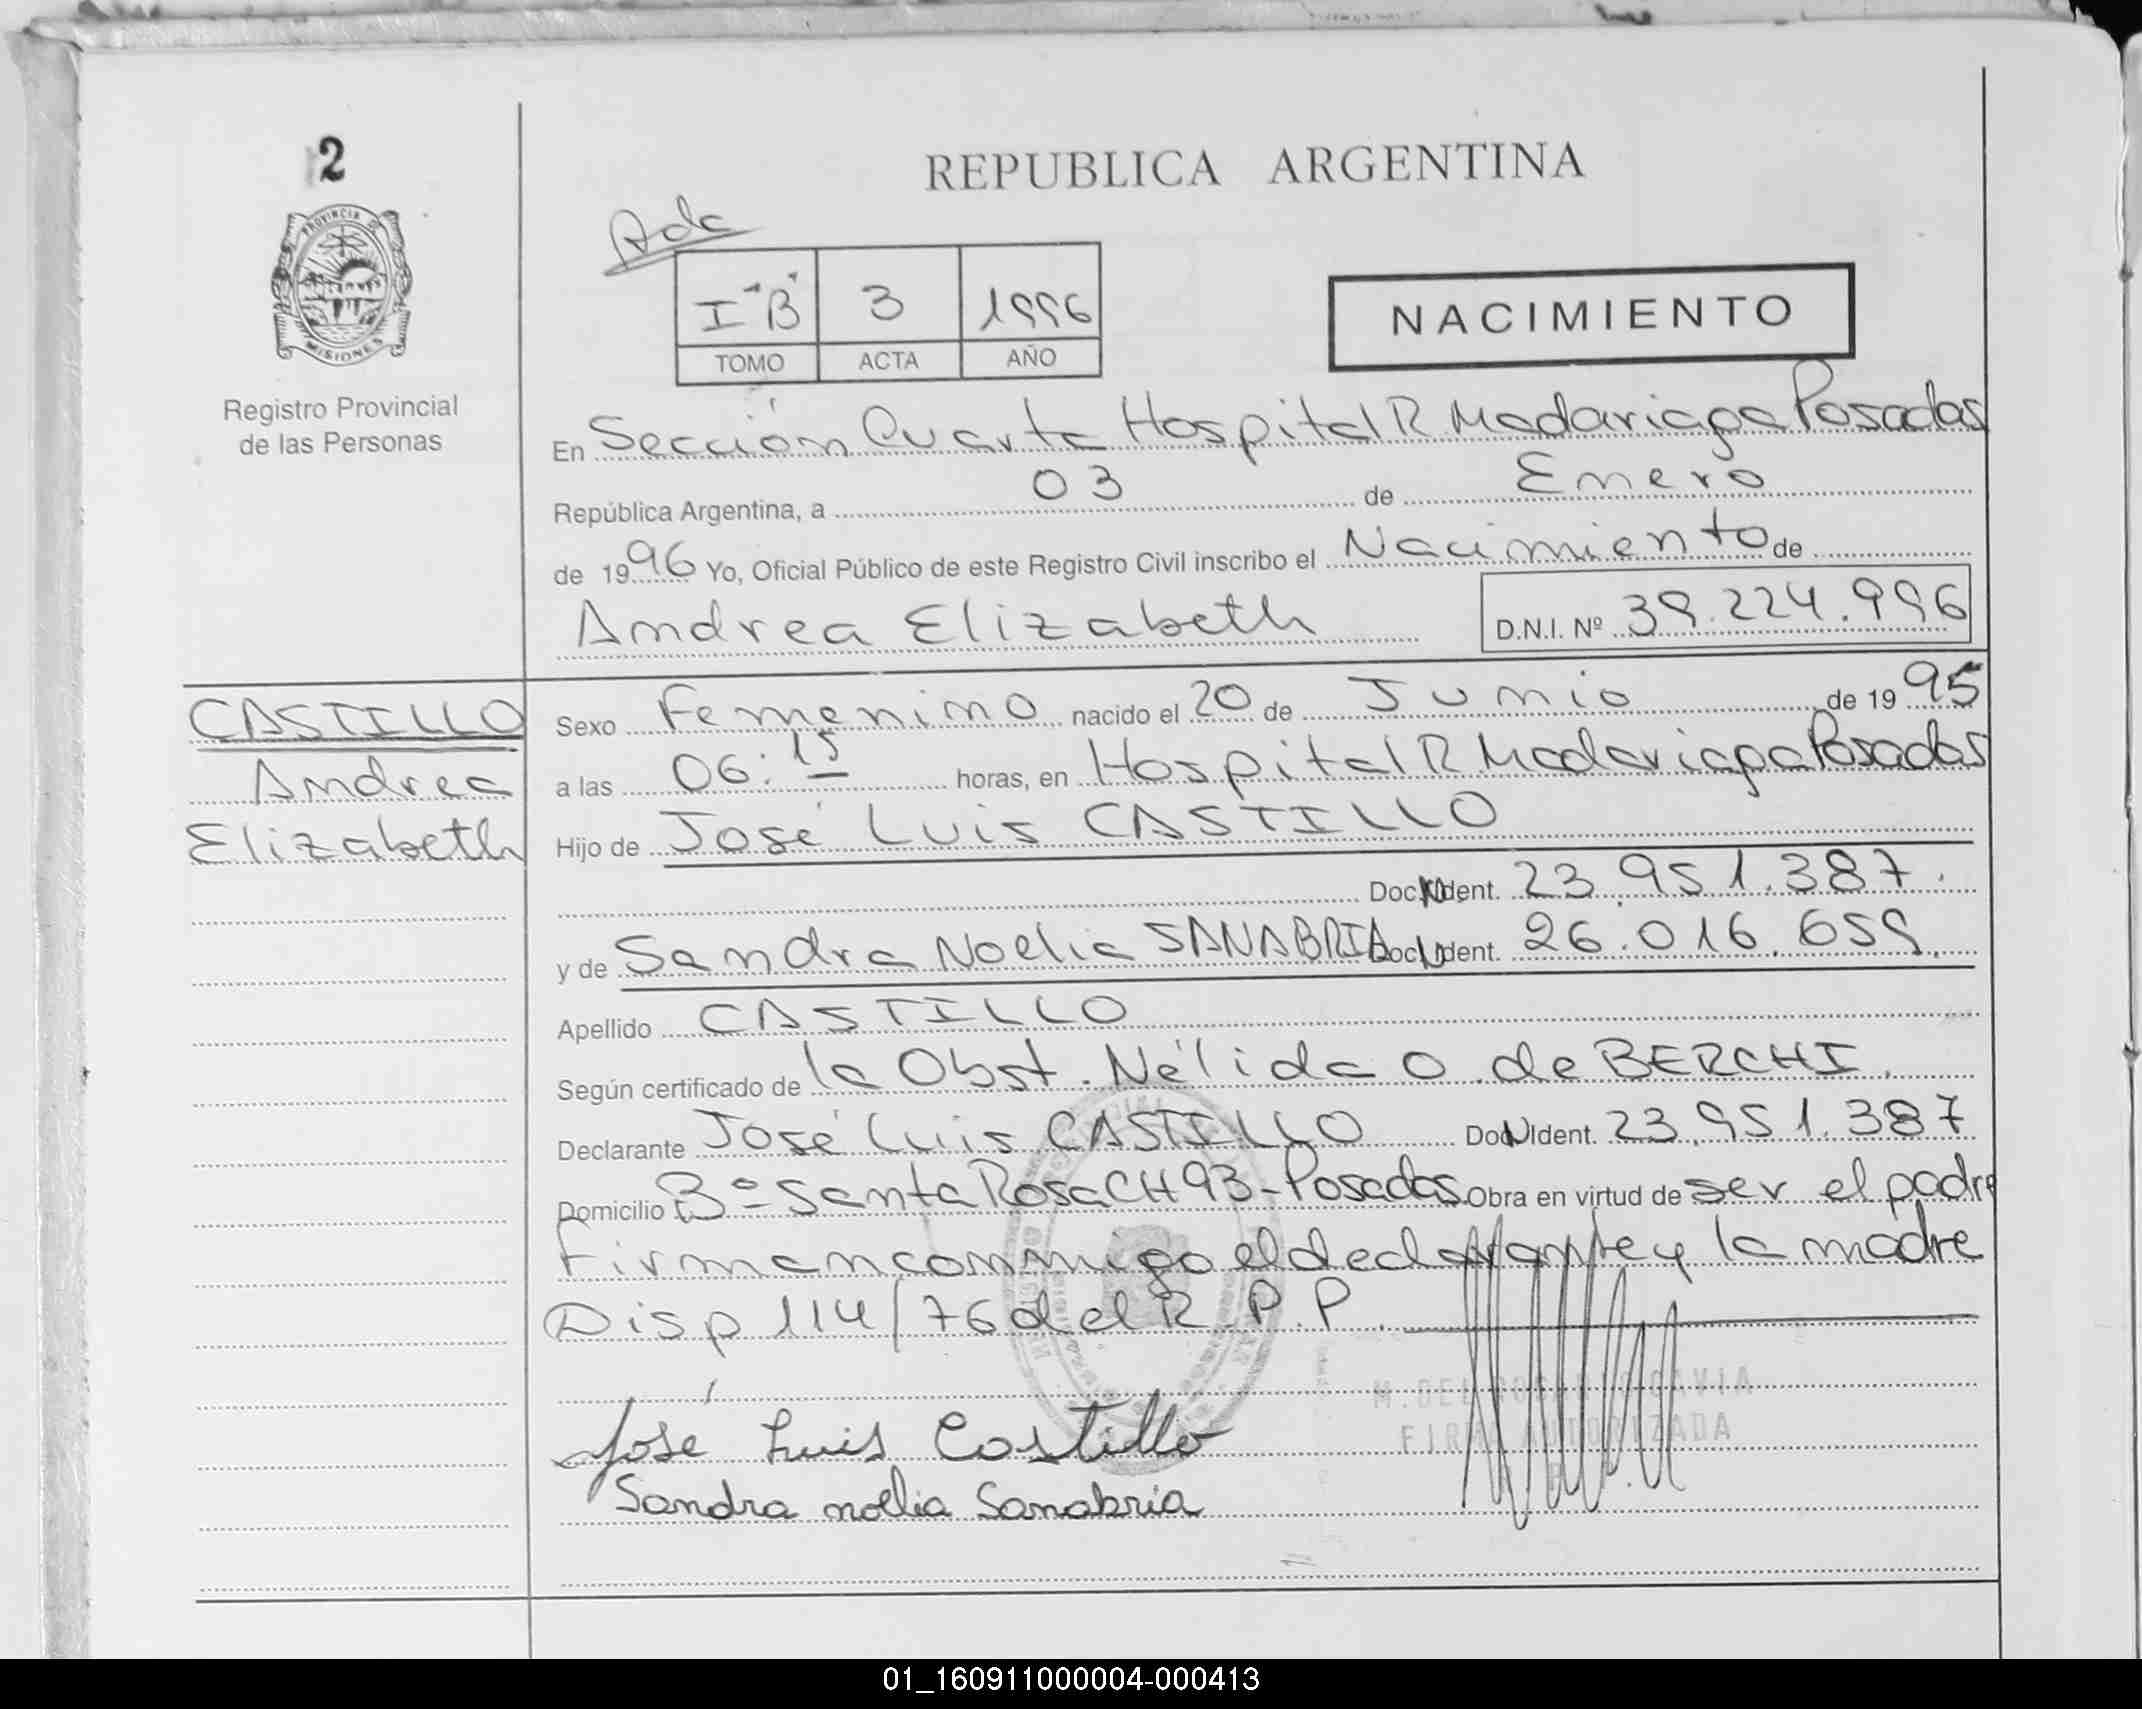 2
PROVINCIA DE
MISIONES
Registro Provincial
de las Personas
REPUBLICA ARGENTINA
Adc
I "B" 3 1996
TOMO ACTA AÑO
NACIMIENTO
En Sección Cuarta Hospital R Madariaga Posadas
República Argentina, a 03 de Enero
de 1996 Yo, Oficial Público de este Registro Civil inscribo el Nacimiento de
Andrea Elizabeth D.N.I. Nº 39.224.996
CASTILLO
Andrea
Elizabeth
Sexo Femenino nacido el 20 de Junio de 1995
a las 06:15 horas, en Hospital R Madariaga Posadas
Hijo de José Luis CASTILLO
Doc. N Ident. 23.951.387.
y de Sandra Noelia SANABRIA Doc. N Ident. 26.016.659.
Apellido CASTILLO
Según certificado de la Obst. Nélida O. de BERCHI.
Declarante José Luis CASTILLO Doc N Ident. 23.951.387
Domicilio Bº Santa Rosa CH 93 - Posadas. Obra en virtud de ser el padre
Firman conmigo el declarante y la madre
Disp 114/76 del R.P.P.
M. DEL ROSARIO GAVIA
FIRMA AUTORIZADA
José Luis Castillo
Sandra noelia Sanabria
01_160911000004-000413